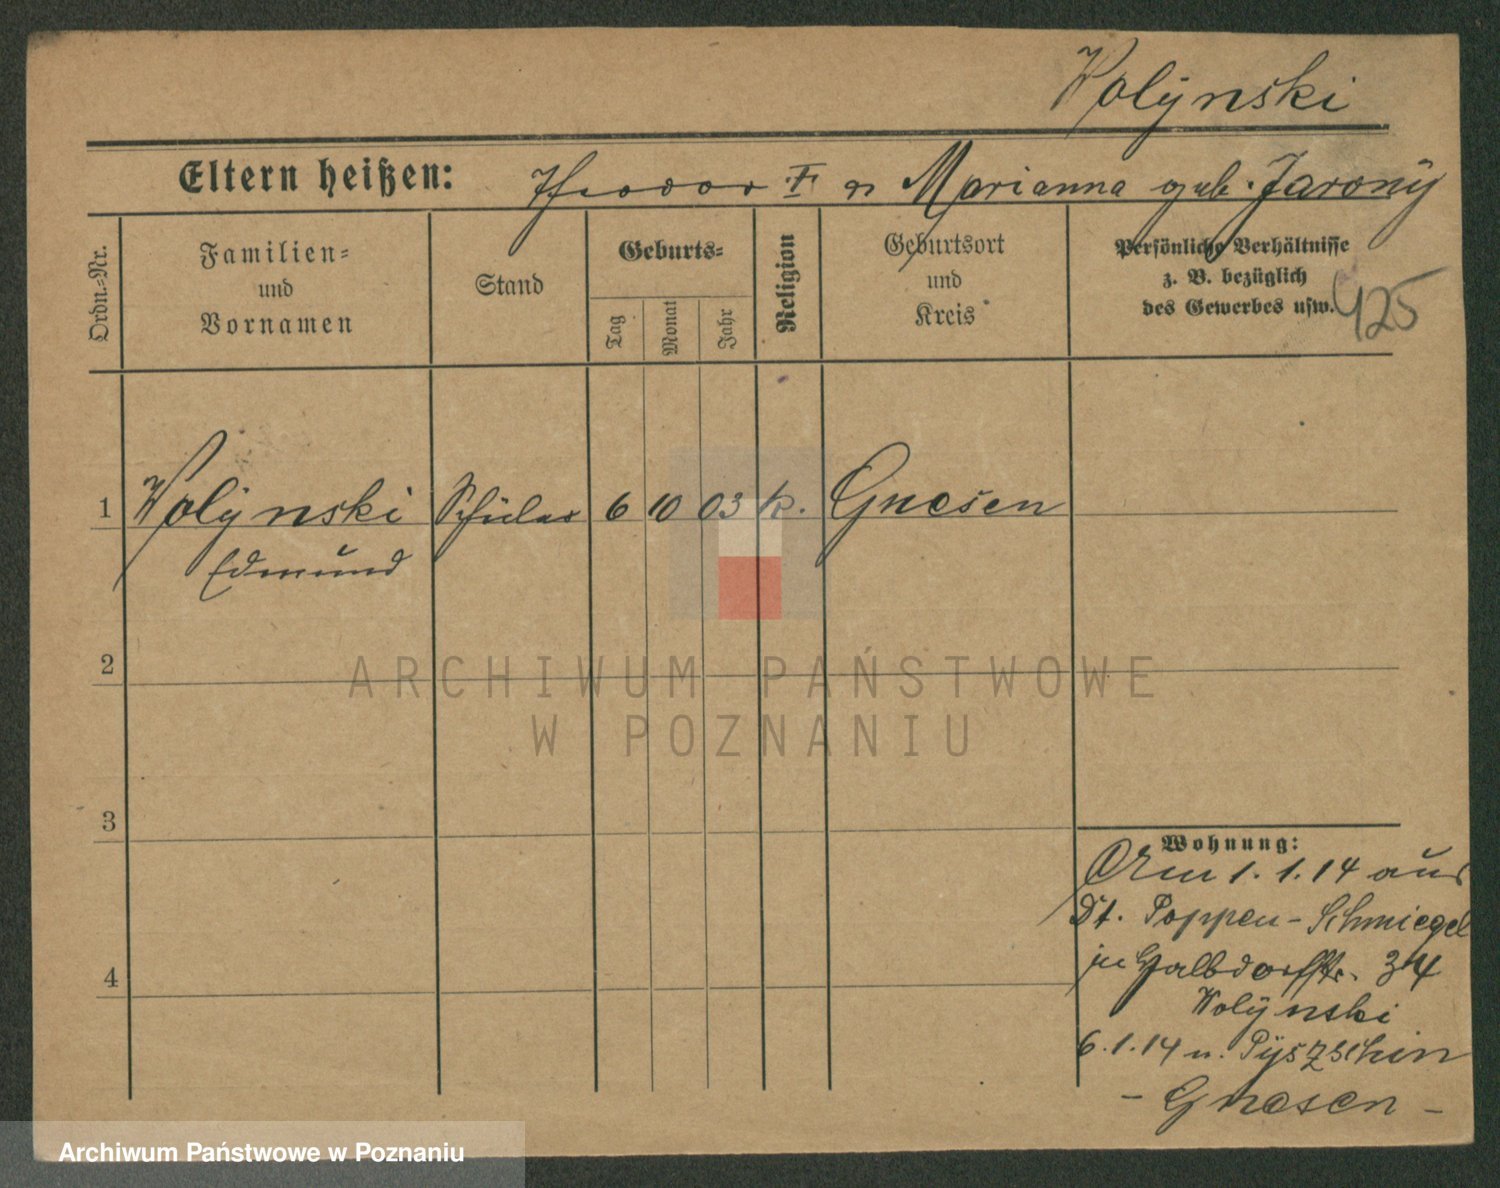 Wolÿnski
Eltern heißen: Theodor F u Marianna geb. Jaronÿ
Ordn.-Nr.
Familien-
und
Vornamen
Stand
Geburts-
Tag
Monat
Jahr
Religion
Geburtsort
und
Kreis
Persönliche Verhältnisse
z. B. bezüglich
des Gewerbes usw.
425
1 Wolÿnski Schüler 6 10 03 k. Gnesen
Edmund
2
ARCHIWUM PAŃSTWOWE
W POZNANIU
3
Wohnung:
Am 1.1.14 aus
Dt. Poppen-Schmiegel
in Halbdorfstr. 34
Wolÿnski
4
6.1.14 n. Pÿszschin
- Gnesen -
Archiwum Państwowe w Poznaniu